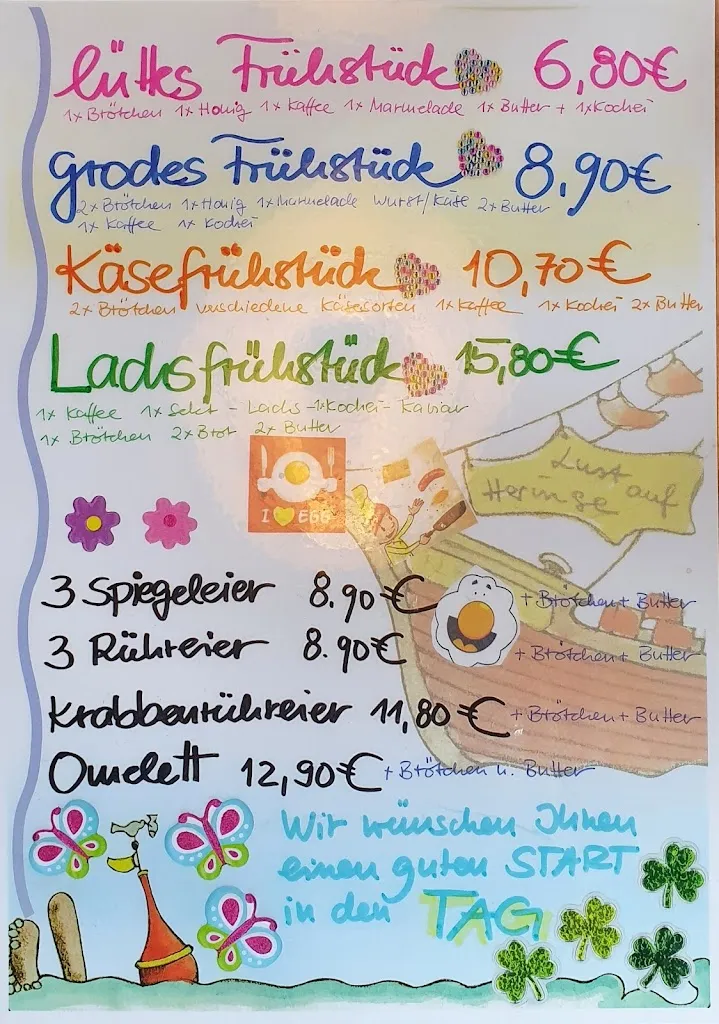 lüttes Frühstück 6,80€
1x Brötchen 1x Honig 1x Kaffee 1x Marmelade 1x Butter + 1x Kochei
grodes Frühstück 8,90€
2x Brötchen 1x Honig 1x Marmelade Wurst/Käse 2x Butter
1x Kaffee 1x Kochei
Käsefrühstück 10,70€
2x Brötchen verschiedene Käsesorten 1x Kaffee 1x Kochei 2x Butter
Lachsfrühstück 15,80€
1x Kaffee 1x Sekt - Lachs - 1x Kochei - Kaviar
1x Brötchen 2x Brot 2x Butter
I EGG
Lust auf
Heringe
3 Spiegeleier 8.90€ + Brötchen + Butter
3 Rühreier 8.90€ + Brötchen + Butter
Krabbenrühreier 11,80€ + Brötchen + Butter
Omelett 12,90€ + Brötchen u. Butter
Wir wünschen Ihnen
einen guten START
in den TAG